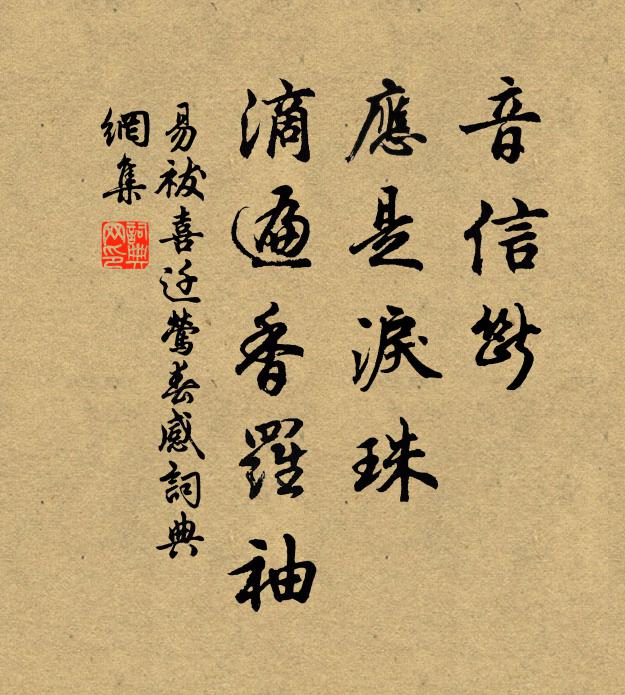 音信斷
應是淚珠
滴遍香羅袖
易祓喜迁鶯春感詞典
網集
詞典
网印